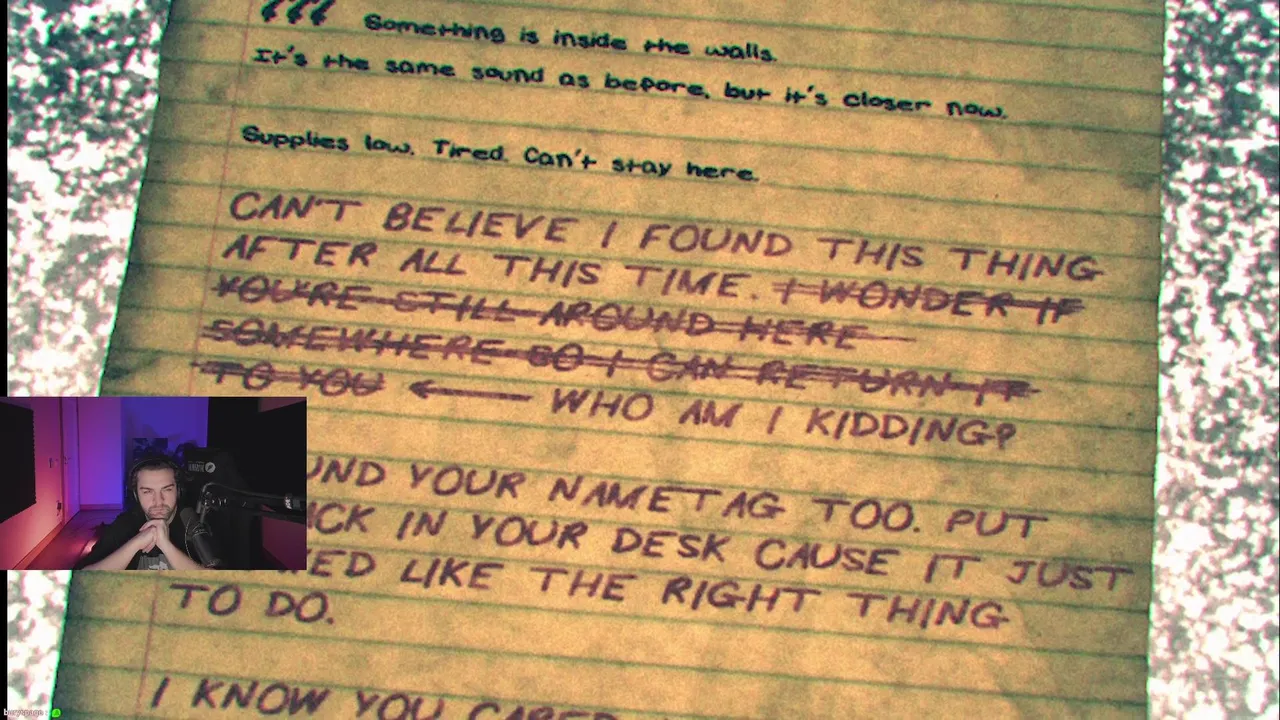 Something is inside the walls.
It's the same sound as before, but it's closer now.
Supplies low. Tired. Can't stay here.
CAN'T BELIEVE I FOUND THIS THING
AFTER ALL THIS TIME. I WONDER IF
YOU'RE STILL AROUND HERE
SOMEWHERE SO I CAN RETURN IT
TO YOU ← WHO AM I KIDDING?
YOUR NAMETAG TOO. PUT
IN YOUR DESK CAUSE IT JUST
LIKE THE RIGHT THING
TO DO.
I KNOW YOU CARED